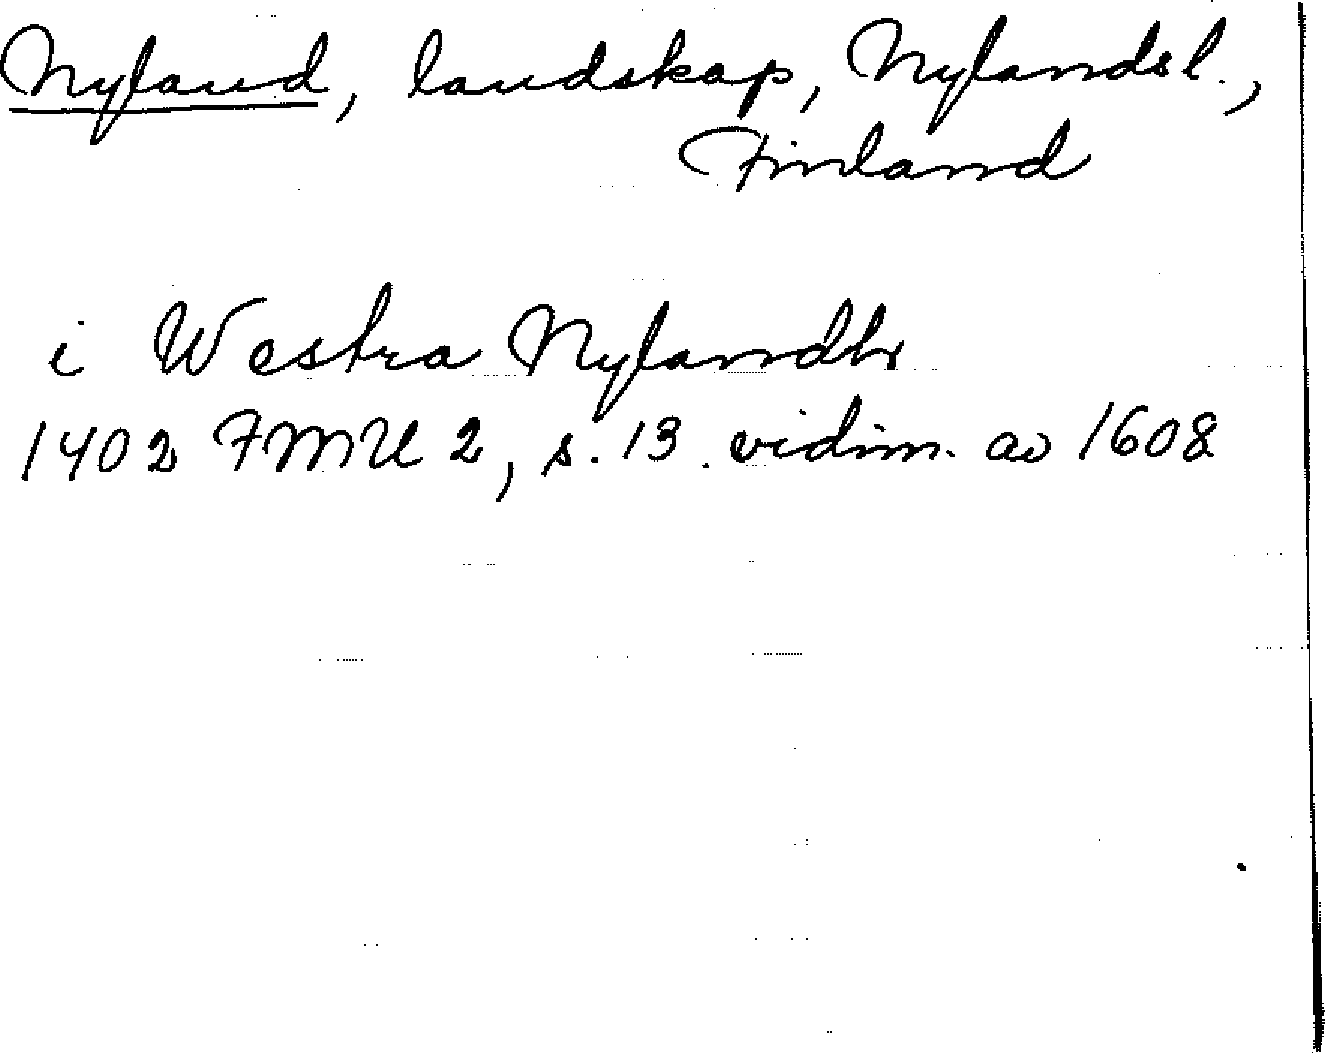 Nyland, landskap, Nylandsl.,
Finland
i Westra Nylandh
1402 FMU 2, s. 13. vidim. av 1608